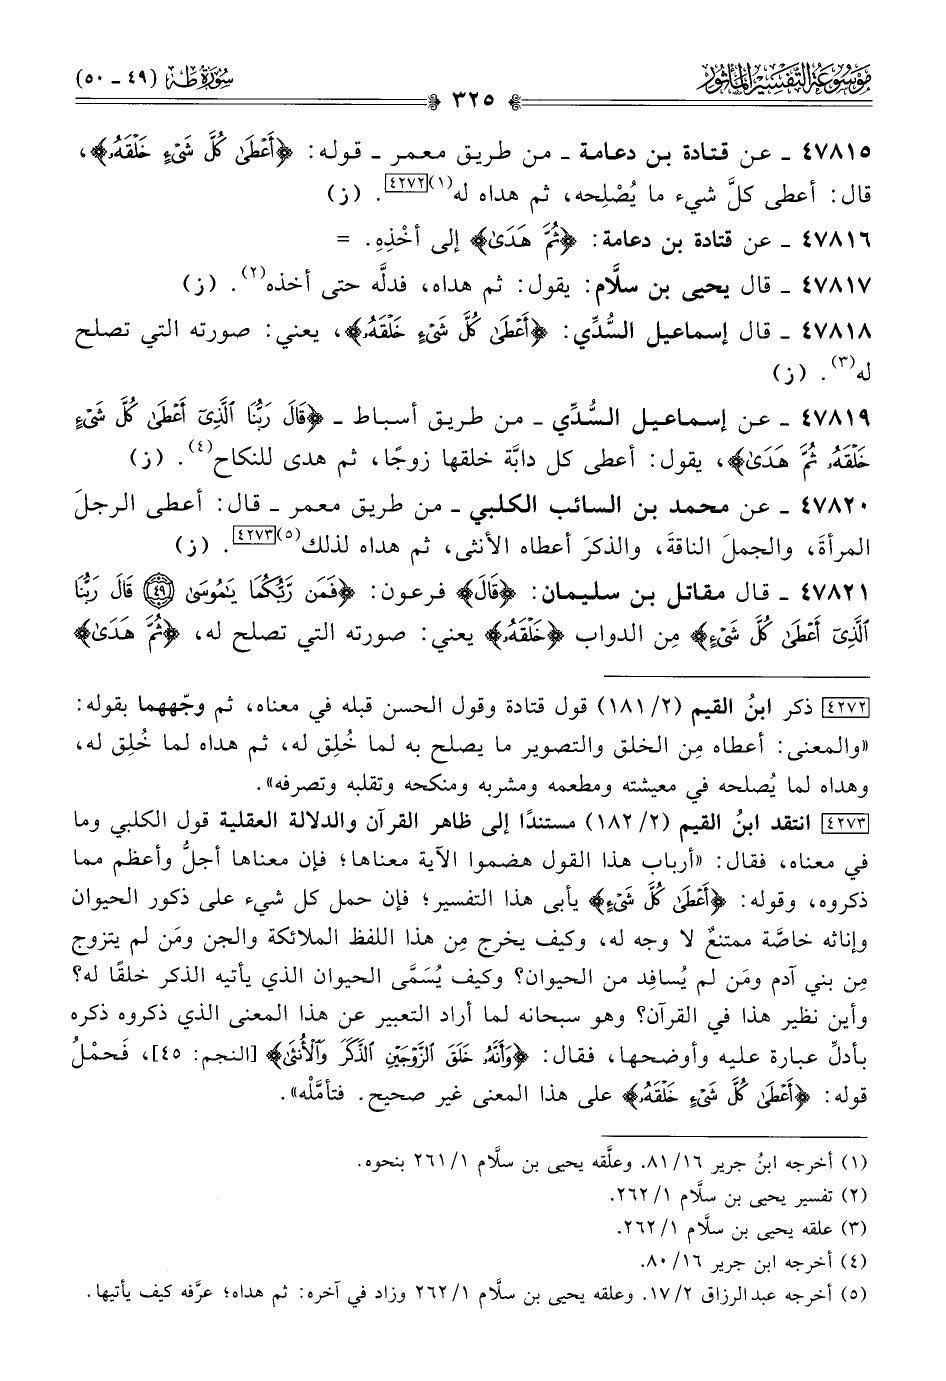 مَوْسُوعَة التَّفْسِير المَأْثُور
سُورَة طه (٤٩ - ٥٠)
٣٢٥
٤٧٨١٥ - عن قتادة بن دعامة - من طريق معمر - قوله: ﴿أَعْطَىٰ كُلَّ شَىْءٍ خَلْقَهُۥ﴾،
قال: أعطى كلَّ شيء ما يُصْلِحه، ثم هداه له(١)[٤٢٧٢]. (ز)
٤٧٨١٦ - عن قتادة بن دعامة: ﴿ثُمَّ هَدَىٰ﴾ إلى أخْذِهِ. =
٤٧٨١٧ - قال يحيى بن سلَّام: يقول: ثم هداه، فدلَّه حتى أخذه(٢). (ز)
٤٧٨١٨ - قال إسماعيل السُّدِّي: ﴿أَعْطَىٰ كُلَّ شَىْءٍ خَلْقَهُۥ﴾، يعني: صورته التي تصلح
له(٣). (ز)
٤٧٨١٩ - عن إسماعيل السُّدِّي - من طريق أسباط - ﴿قَالَ رَبُّنَا ٱلَّذِىٓ أَعْطَىٰ كُلَّ شَىْءٍ
خَلْقَهُۥ ثُمَّ هَدَىٰ﴾، يقول: أعطى كل دابَّة خلقها زوجًا، ثم هدى للنكاح(٤). (ز)
٤٧٨٢٠ - عن محمد بن السائب الكلبي - من طريق معمر - قال: أعطى الرجلَ
المرأةَ، والجملَ الناقةَ، والذكرَ أعطاه الأنثى، ثم هداه لذلك(٥)[٤٢٧٣]. (ز)
٤٧٨٢١ - قال مقاتل بن سليمان: ﴿قَالَ﴾ فرعون: ﴿فَمَن رَّبُّكُمَا يَٰمُوسَىٰ ۝٤٩ قَالَ رَبُّنَا
ٱلَّذِىٓ أَعْطَىٰ كُلَّ شَىْءٍ﴾ مِن الدواب ﴿خَلْقَهُۥ﴾ يعني: صورته التي تصلح له، ﴿ثُمَّ هَدَىٰ﴾
[٤٢٧٢] ذكر ابنُ القيم (٢/ ١٨١) قول قتادة وقول الحسن قبله في معناه، ثم وجّههما بقوله:
«والمعنى: أعطاه مِن الخلق والتصوير ما يصلح به لما خُلِق له، ثم هداه لما خُلِق له،
وهداه لما يُصلحه في معيشته ومطعمه ومشربه ومنكحه وتقلبه وتصرفه».
[٤٢٧٣] انتقد ابنُ القيم (٢/ ١٨٢) مستندًا إلى ظاهر القرآن والدلالة العقلية قول الكلبي وما
في معناه، فقال: «أرباب هذا القول هضموا الآية معناها؛ فإن معناها أجلُّ وأعظم مما
ذكروه، وقوله: ﴿أَعْطَىٰ كُلَّ شَىْءٍ﴾ يأبى هذا التفسير؛ فإن حمل كل شيء على ذكور الحيوان
وإناثه خاصَّة ممتنعٌ لا وجه له، وكيف يخرج مِن هذا اللفظ الملائكة والجن ومَن لم يتزوج
مِن بني آدم ومَن لم يُسافِد من الحيوان؟ وكيف يُسَمَّى الحيوان الذي يأتيه الذكر خلقًا له؟
وأين نظير هذا في القرآن؟ وهو سبحانه لما أراد التعبير عن هذا المعنى الذي ذكروه ذكره
بأدلِّ عبارة عليه وأوضحها، فقال: ﴿وَأَنَّهُۥ خَلَقَ ٱلزَّوْجَيْنِ ٱلذَّكَرَ وَٱلْأُنثَىٰ﴾ [النجم: ٤٥]، فَحمْلُ
قوله: ﴿أَعْطَىٰ كُلَّ شَىْءٍ خَلْقَهُۥ﴾ على هذا المعنى غير صحيح. فتأمَّلْه».
(١) أخرجه ابنُ جرير ١٦/ ٨١. وعلَّقه يحيى بن سلَّام ١/ ٢٦١ بنحوه.
(٢) تفسير يحيى بن سلَّام ١/ ٢٦٢.
(٣) علقه يحيى بن سلَّام ١/ ٢٦٢.
(٤) أخرجه ابن جرير ١٦/ ٨٠.
(٥) أخرجه عبدالرزاق ٢/ ١٧. وعلقه يحيى بن سلَّام ١/ ٢٦٢ وزاد في آخره: ثم هداه؛ عرَّفه كيف يأتيها.